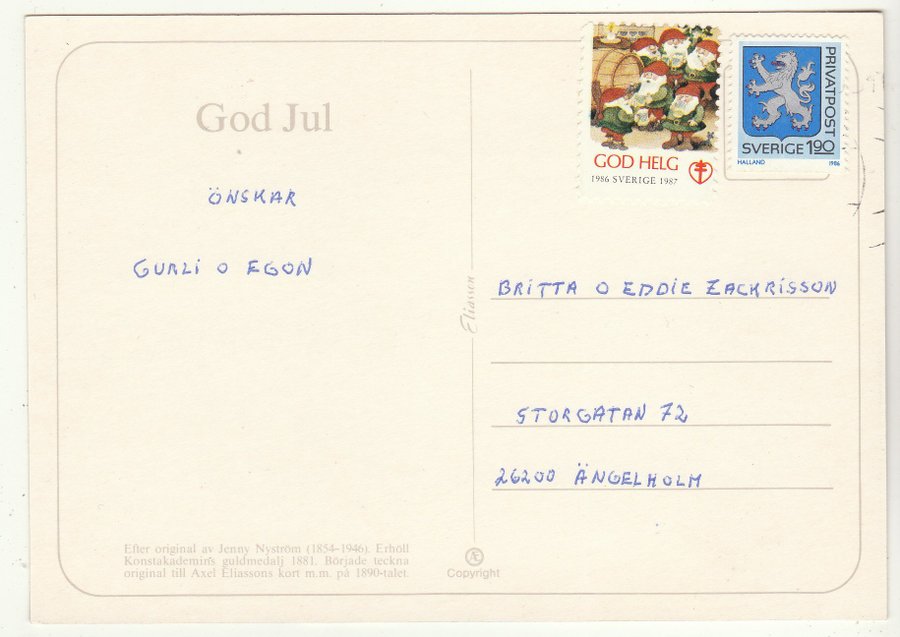 God Jul
ÖNSKAR
GURLI O EGON
Efter original av Jenny Nyström (1854-1946). Erhöll
Konstakademins guldmedalj 1881. Började teckna
original till Axel Eliassons kort m.m. på 1890-talet.
Eliasson
Æ
Copyright
GOD HELG
1986 SVERIGE 1987
PRIVATPOST
SVERIGE 1.90
HALLAND 1986
BRITTA O EDDIE ZACKRISSON
STORGATAN 72
26200 ÄNGELHOLM